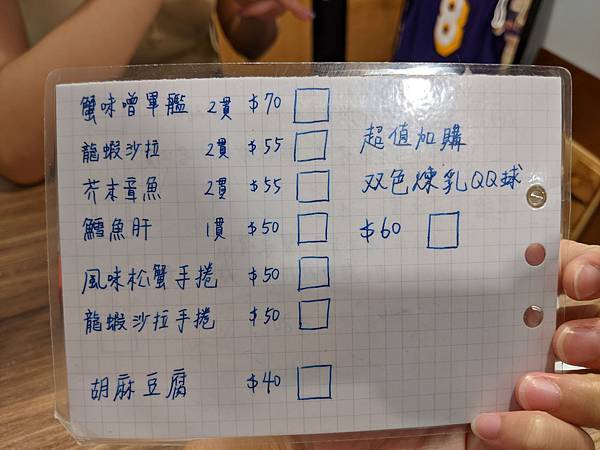 蟹味噌軍艦 2貫 $70
龍蝦沙拉 2貫 $55
芥末章魚 2貫 $55
鱈魚肝 1貫 $50
風味松蟹手捲 $50
龍蝦沙拉手捲 $50
胡麻豆腐 $40
超值加購
双色煉乳QQ球
$60
8